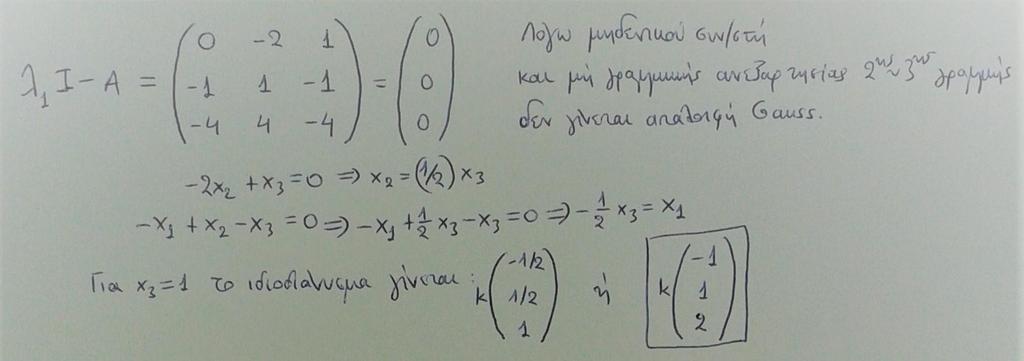 λ₁I-A = ( 0 -2 1 ; -1 1 -1 ; -4 4 -4 ) = ( 0 ; 0 ; 0 )
Λόγω μηδενικού συν/στή
και μή γραμμικής ανεξαρτησίας 2ης ~ 3ης γραμμής
δεν γίνεται απαλοιφή Gauss.
-2x₂ + x₃ = 0 => x₂ = (1/2) x₃
-x₁ + x₂ - x₃ = 0 => -x₁ + 1/2 x₃ - x₃ = 0 => - 1/2 x₃ = x₁
Για x₃ = 1 το ιδιοδιάνυσμα γίνεται: k( -1/2 ; 1/2 ; 1 ) ή k( -1 ; 1 ; 2 )